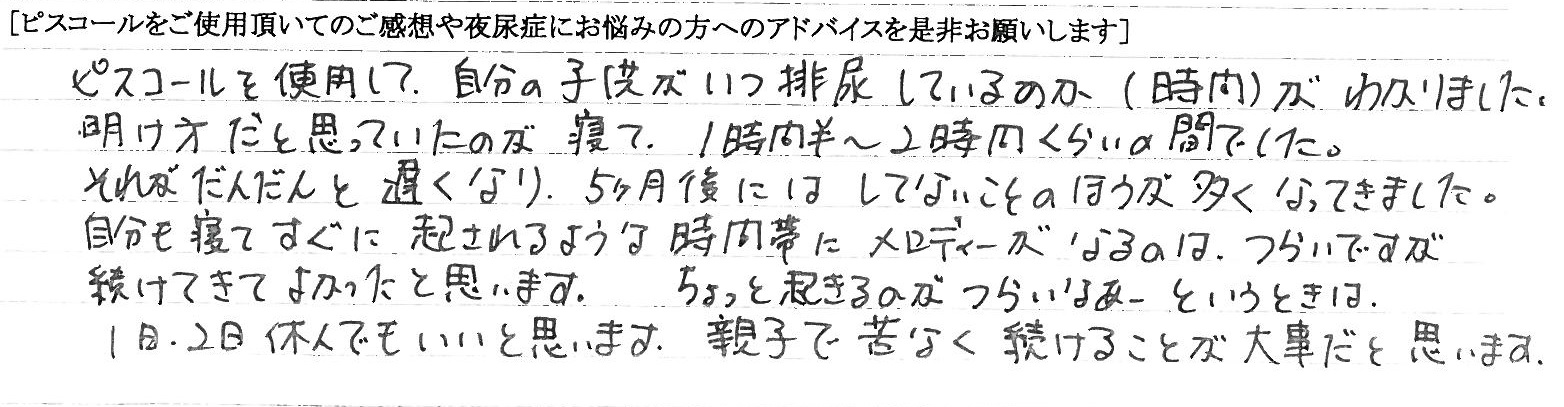 [ピスコールをご使用頂いてのご感想や夜尿症にお悩みの方へのアドバイスを是非お願いします]
ピスコールを使用して、自分の子供がいつ排尿しているのか、(時間)がわかりました。
明け方だと思っていたのが寝て、1時間半~2時間くらいの間でした。
それがだんだんと遅くなり、5ヶ月後にはしてないことのほうが多くなってきました。
自分も寝てすぐに起されるような時間帯にメロディーがなるのは、つらいですが
続けてきてよかったと思います。 ちょっと起きるのがつらいなあーというときは、
1日、2日休んでもいいと思います。親子で苦なく続けることが大事だと思います。